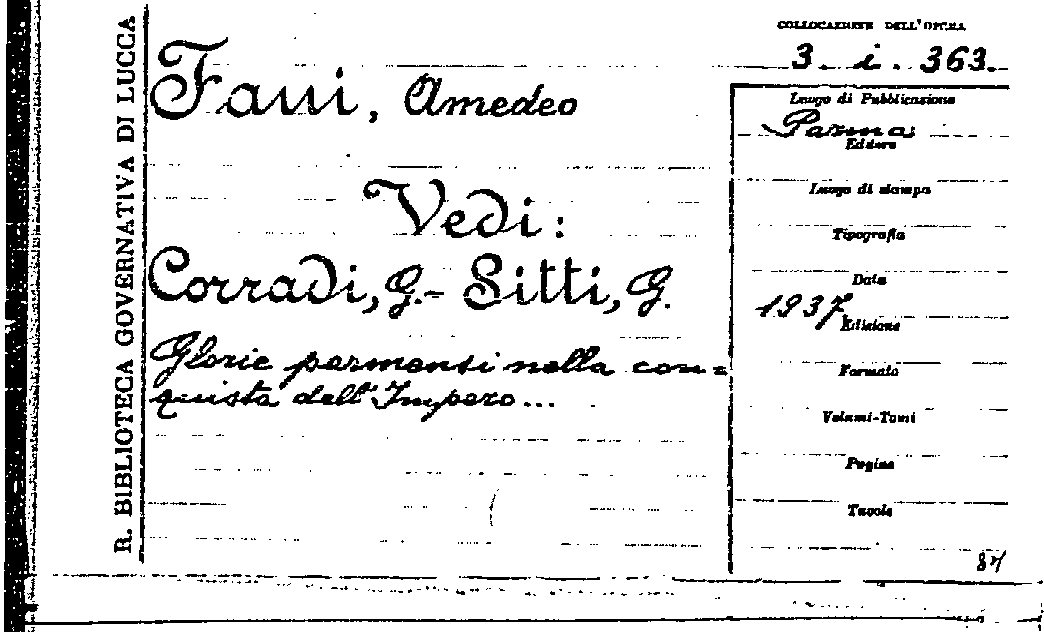 R. BIBLIOTECA GOVERNATIVA DI LUCCA
Fani, Amedeo
Vedi:
Corradi, G. - Sitti, G.
Glorie parmensi nella con=
quista dell'Impero...
COLLOCAZIONE DELL'OPERA
3. i. 363.
Luogo di Pubblicazione
Parma
Editore
Luogo di stampa
Tipografia
Data
1937
Edizione
Formato
Volumi-Tomi
Pagine
Tavole